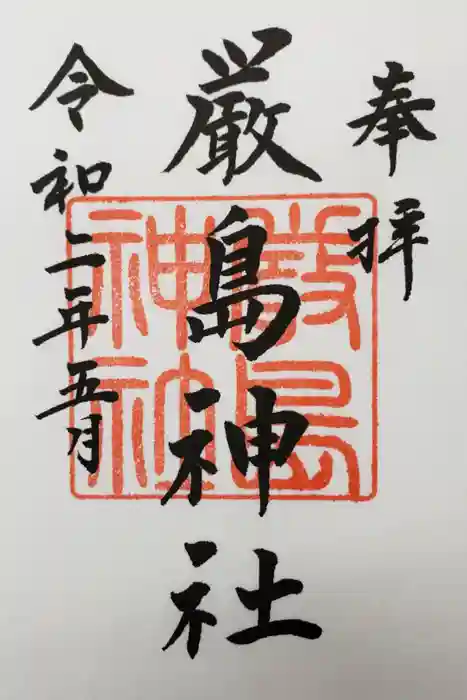 奉拝
厳島神社
令和二年五月
嚴島
神社